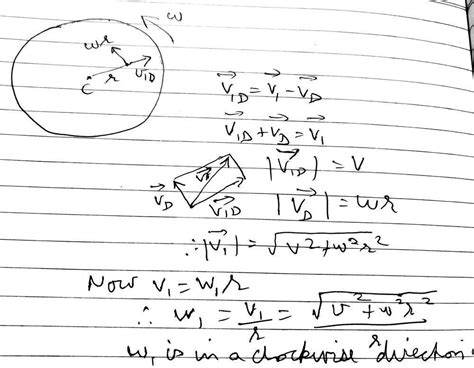 ω
ωr
V⃗₁D
r
C
V⃗₁D = V⃗₁ − V⃗D
V⃗₁D + V⃗D = V⃗₁
V⃗D V⃗₁ V⃗₁D |V⃗₁D| = V
|V⃗D| = ωr
∴ |V⃗₁| = √(V² + ω²r²)
Now V₁ = ω₁r
∴ ω₁ = V₁/r = √(v² + ω²r²)/r
ω₁ is in a clockwise direction.